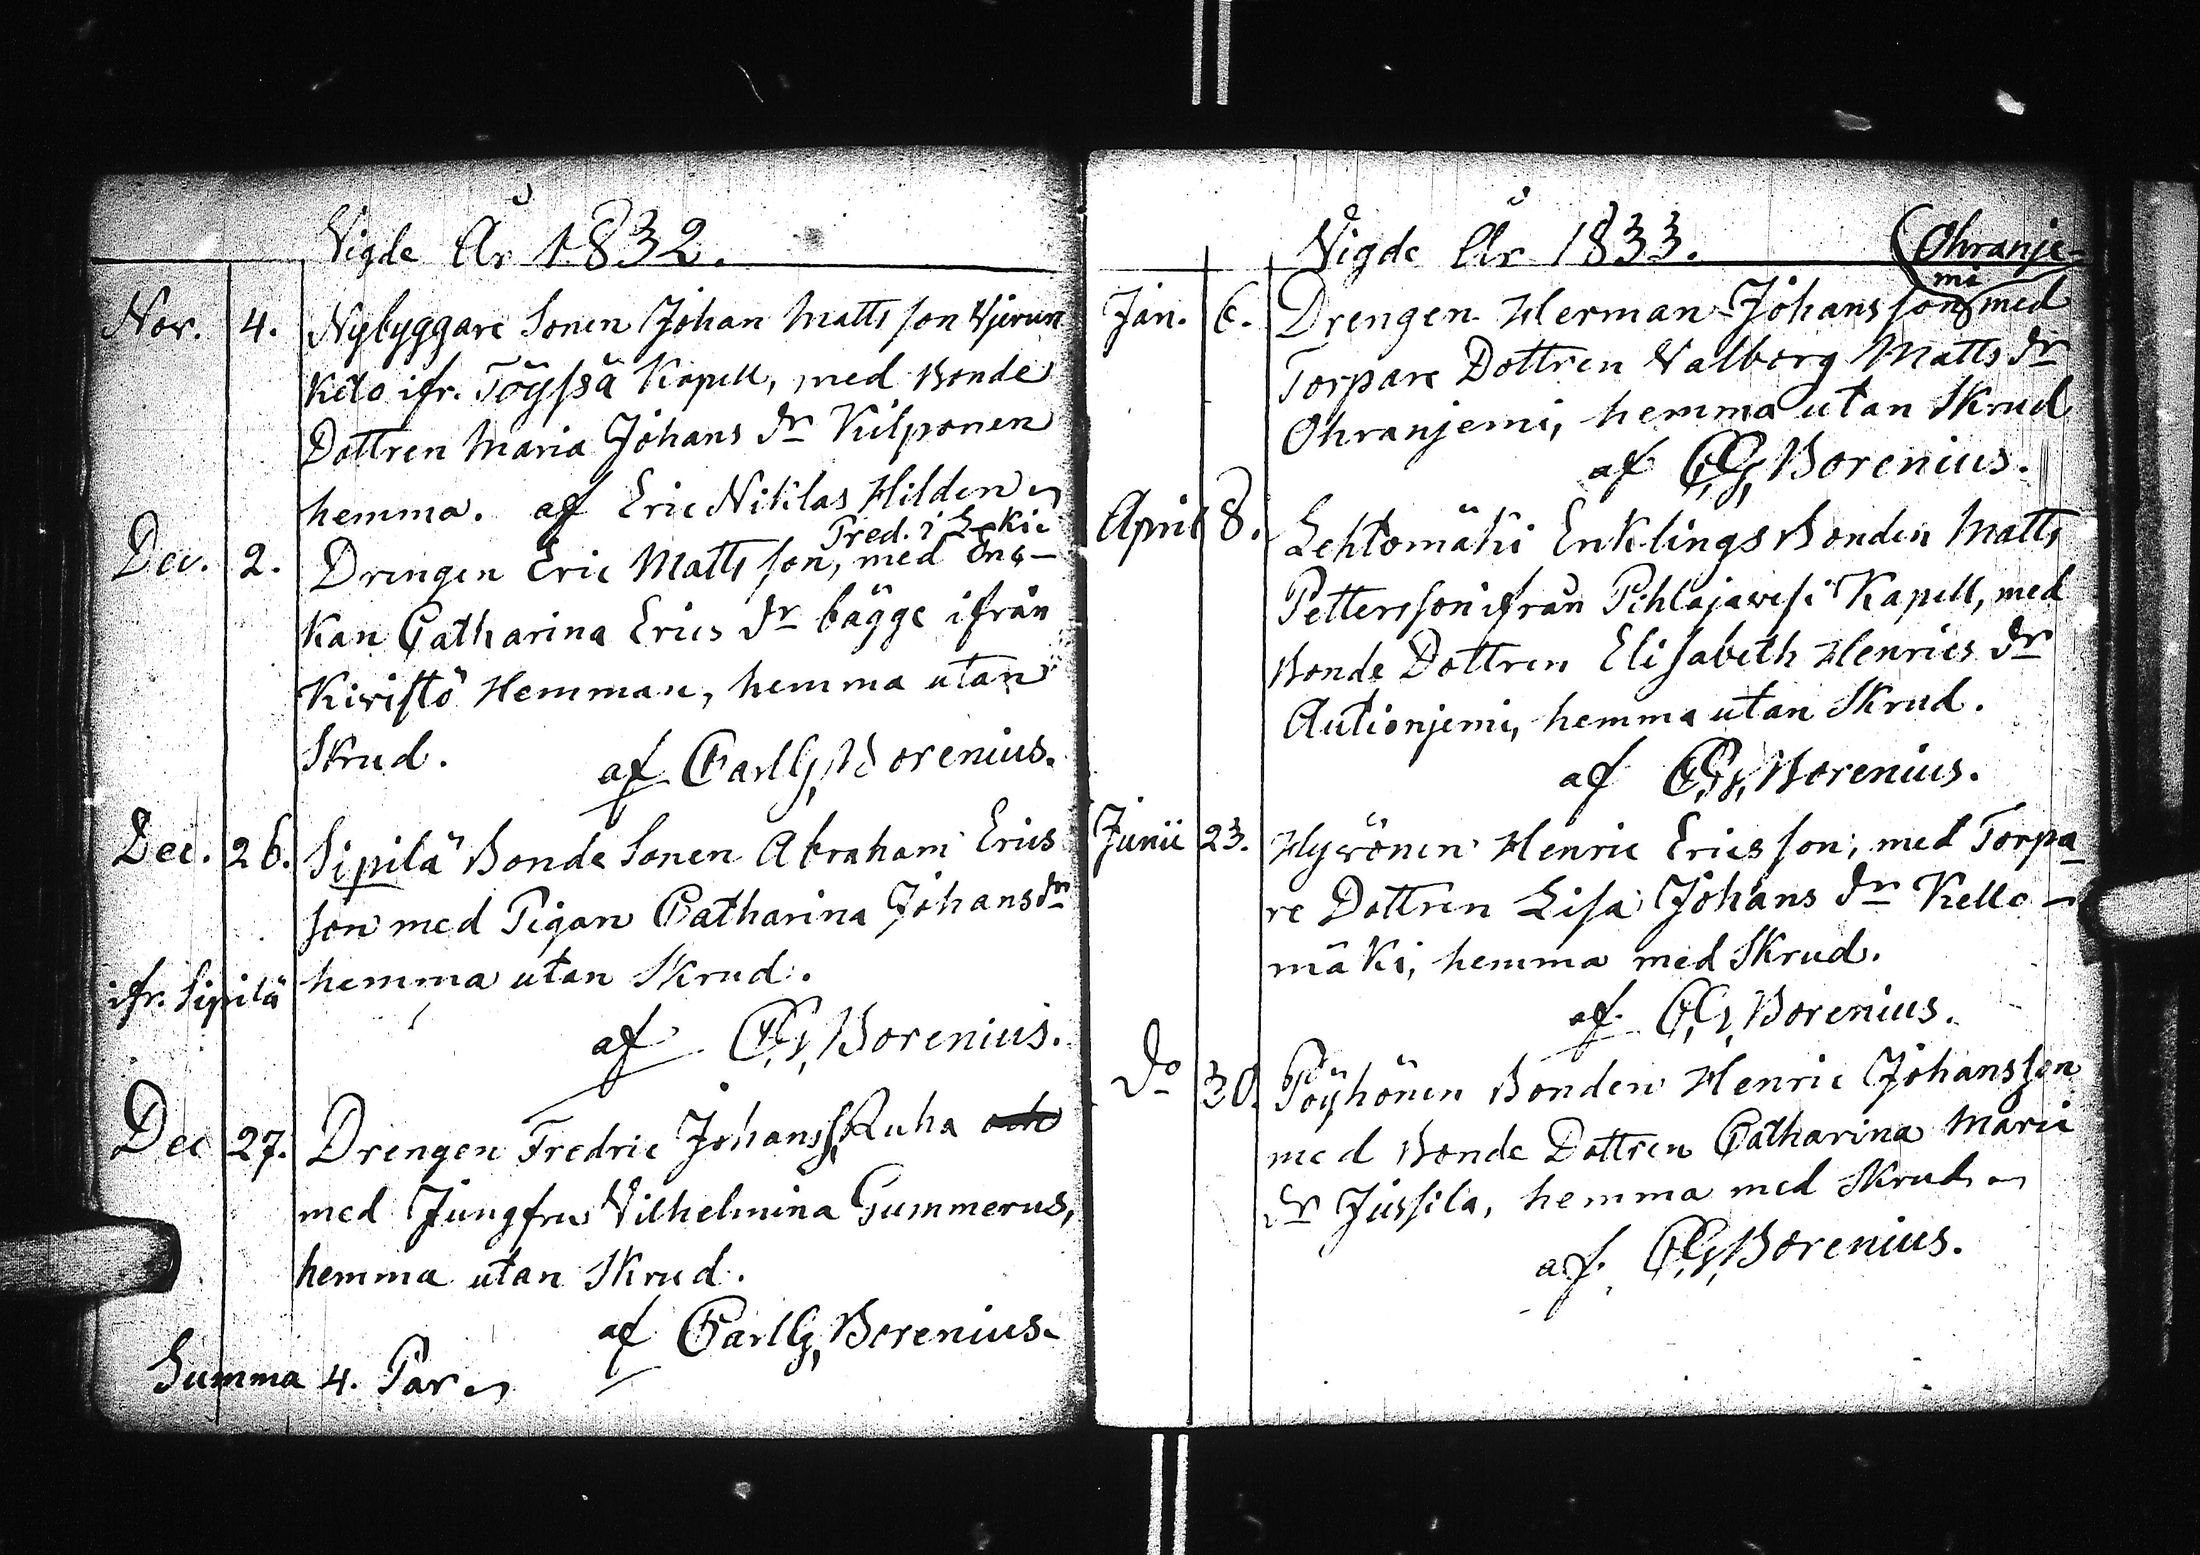 Vigde År 1832.
Nov. 4. Nybyggare Sonen Johan Matts son
Keto ifr. Töyssä Kapell, med Bonde
Dottren Maria Johans dr Kilponen
hemma. af Eric Niklas Hilden
Pred. i
Dec. 2. Drengen Eric Matts son, med Enc-
kan Catharina Erics dr bägge ifrån
Kivistö Hemman, hemma utan
Skrud. af Carl G, Borenius.
Dec. 26. Sipilä Bonde Sonen Abraham Erics
son med Pigan Catharina Johansdr
ifr. Sipilä hemma utan Skrud.
af C,G, Borenius.
Dec 27. Drengen Fredric Johanss, Ruha och
med Jungfru Vilhelmina Gummerus,
hemma utan Skrud.
af Carl G, Borenius.
Summa 4. Par
Vigde År 1833.
(Ohranje-
mi
Jan. 6. Drengen Herman Johansson med
Torpare Dottren Valborg Matts dr
Ohranjemi, hemma utan Skrud
af C,G, Borenius.
April 8. Lehtomäki Enklings Bonden Matts
Pettersson ifrån Pihlajavesi Kapell, med
Bonde Dottren Elisabeth Henrics dr
Autionjemi, hemma utan Skrud.
af C,G, Borenius.
Junii 23. Hyvönen Henric Ericsson, med Torpa-
re Dottren Lisa Johans dr Kello-
mäki, hemma med Skrud.
af C,G, Borenius.
Do 30. Pöyhönen Bonden Henric Johansson
med Bonde Dottren Catharina Marie
dr Jussila, hemma med Skrud
af C,G, Borenius.